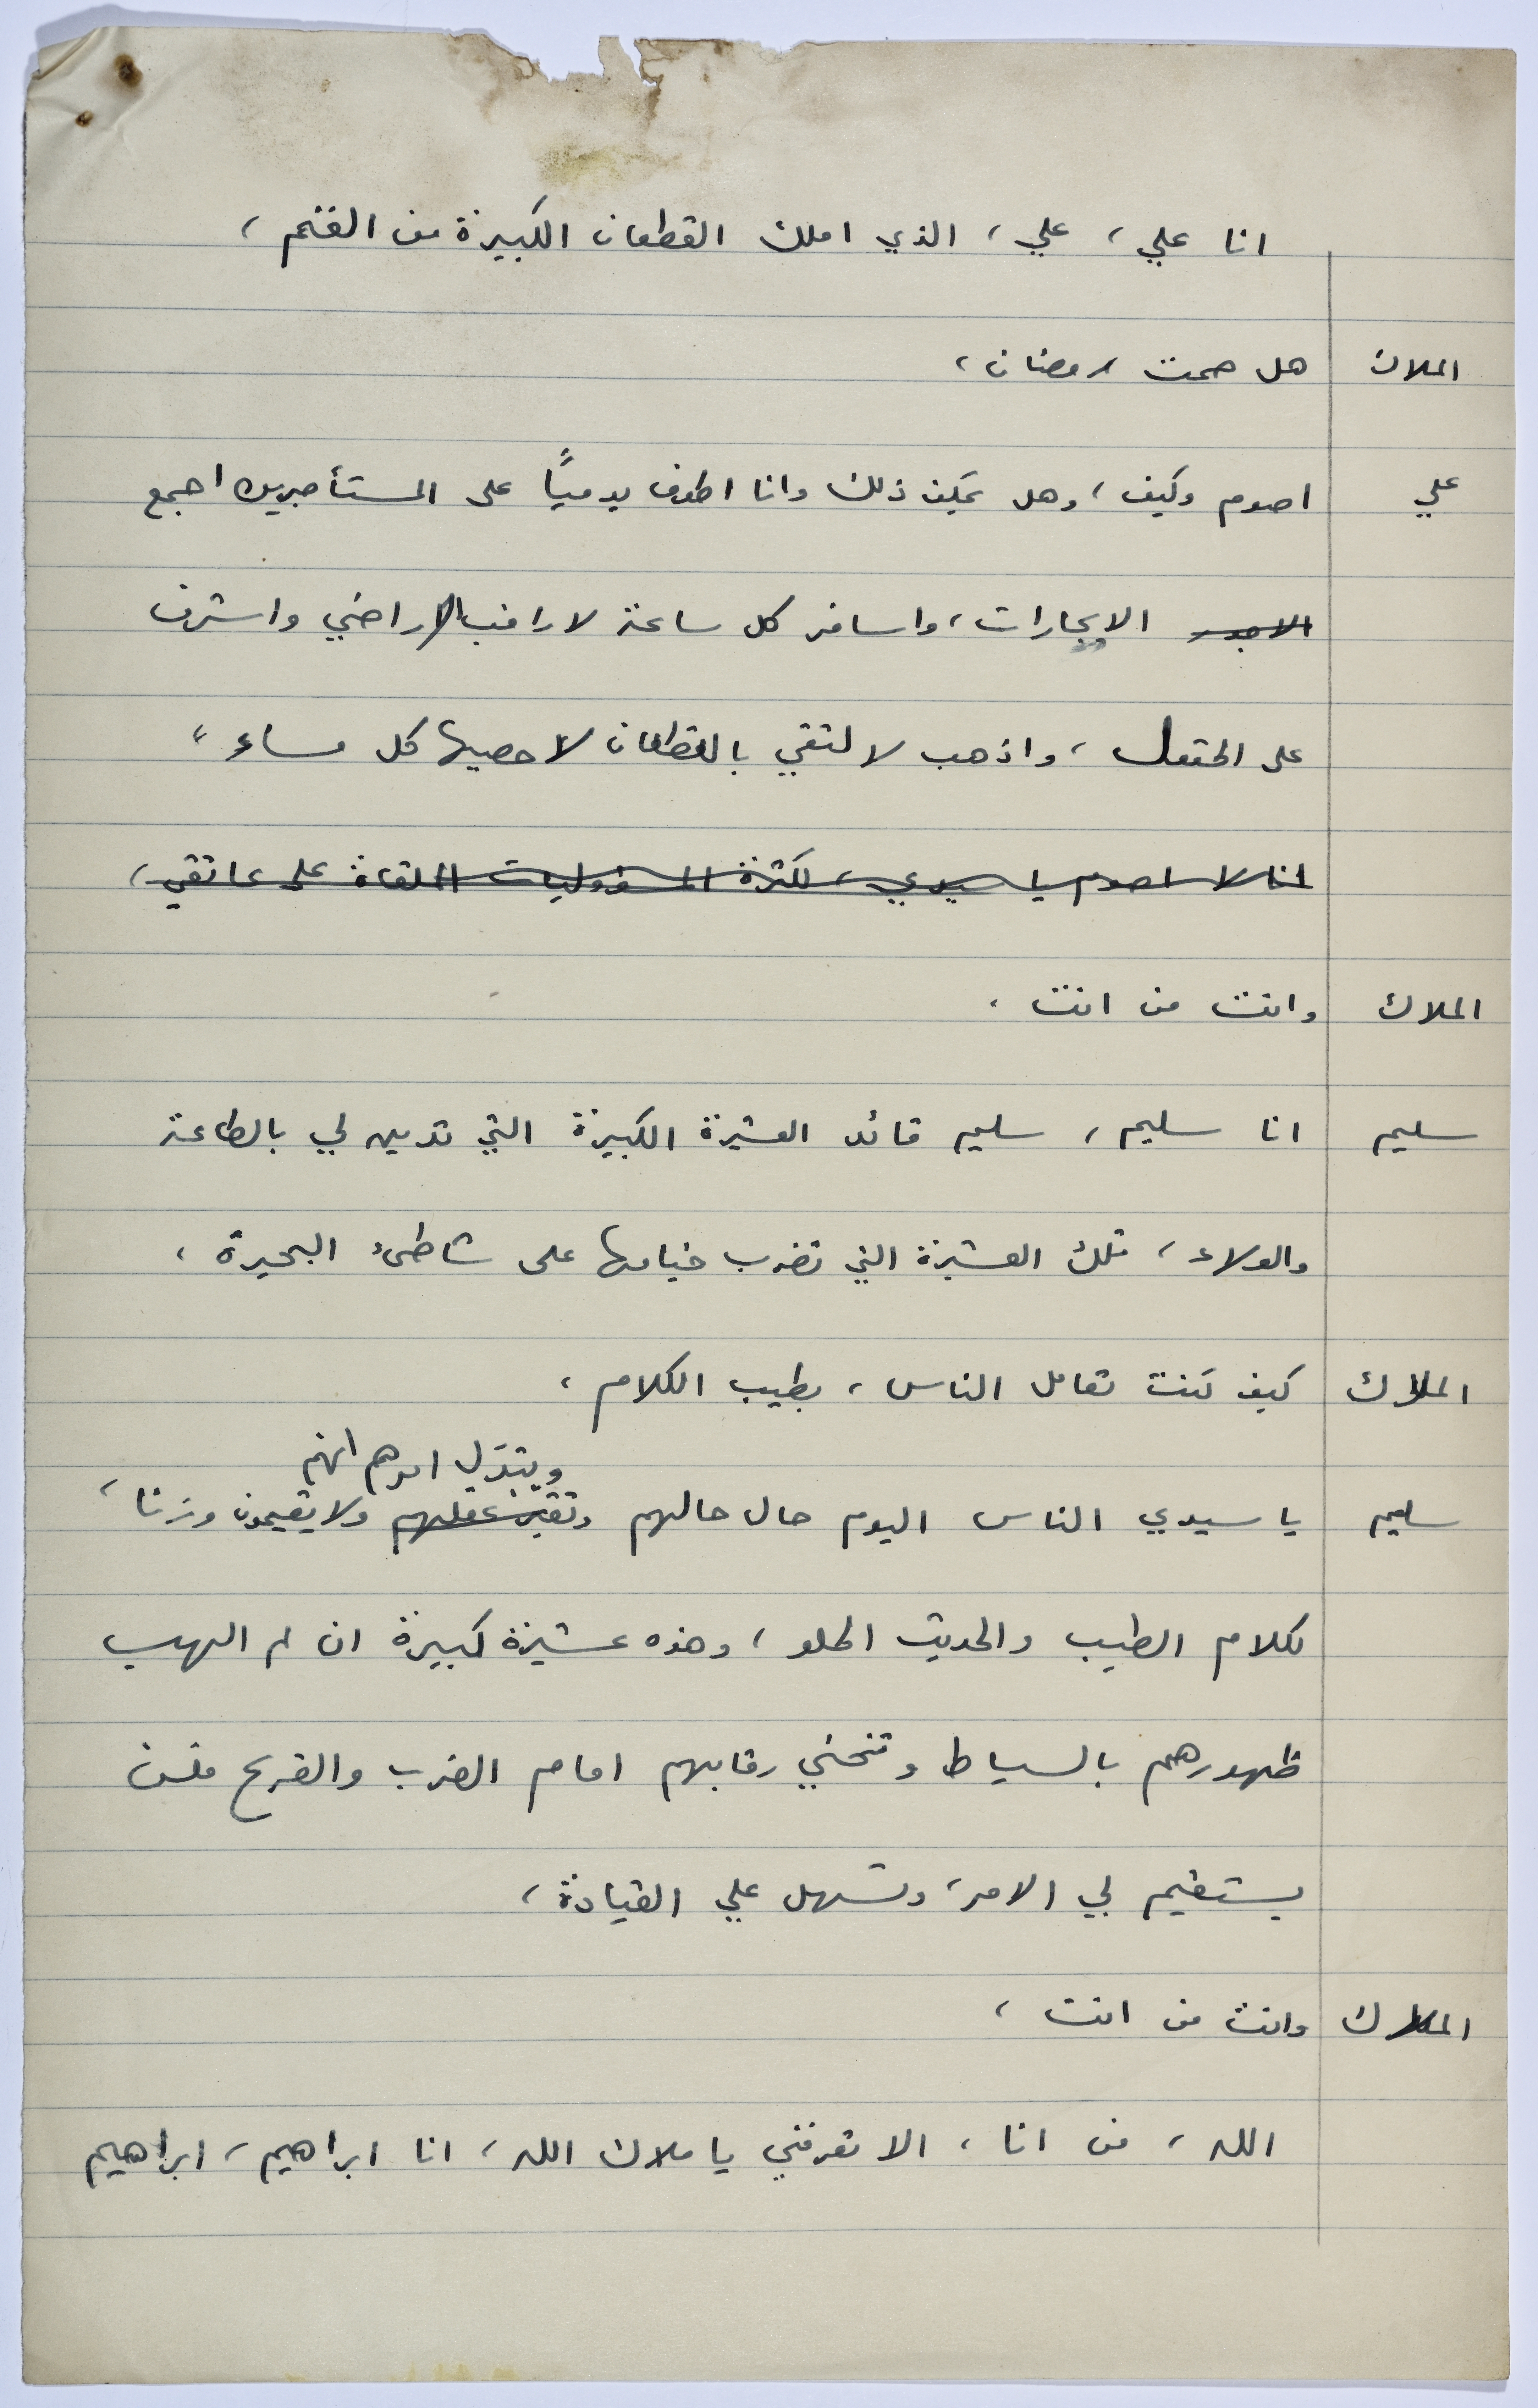 انا علي، علي، الذي املك القطعان الكبيرة من الغنم،
الملاك هل صمت رمضان،
علي اصوم وكيف، وهل يمكن ذلك وانا اطوف يوميًا على المستأجرين اجمع
الايجارات، واسافر كل ساعة لاراقب الاراضي واشرف
على الحقول، واذهب لالتقي بالقطعان لاحصيها كل مساء،
انا لا اصوم يا سيدي، لكثرة المسؤوليات الملقاة على عاتقي،
الملاك وانت من انت،
سليم انا سليم، سليم قائد العشيرة الكبيرة التي تدين لي بالطاعة
والولاء، تلك العشيرة التي تضرب خيامها على شاطئ البحيرة،
الملاك كيف كنت تعامل الناس، بطيب الكلام،
ويتبدّل امرهم انهم
سليم يا سيدي الناس اليوم حال حالهم وتغير عقلهم ولا يقيمون وزنا،
لكلام الطيب والحديث الحلو، وهذه عشيرة كبيرة ان لم الهب
ظهورهم بالسياط وتنحني رقابهم امام الضرب والقرع فلن
يستقيم لي الامر، وتسهل علي القيادة،
الملاك وانت من انت،
الله، من انا، الا تعرفني يا ملاك الله، انا ابراهيم، ابراهيم